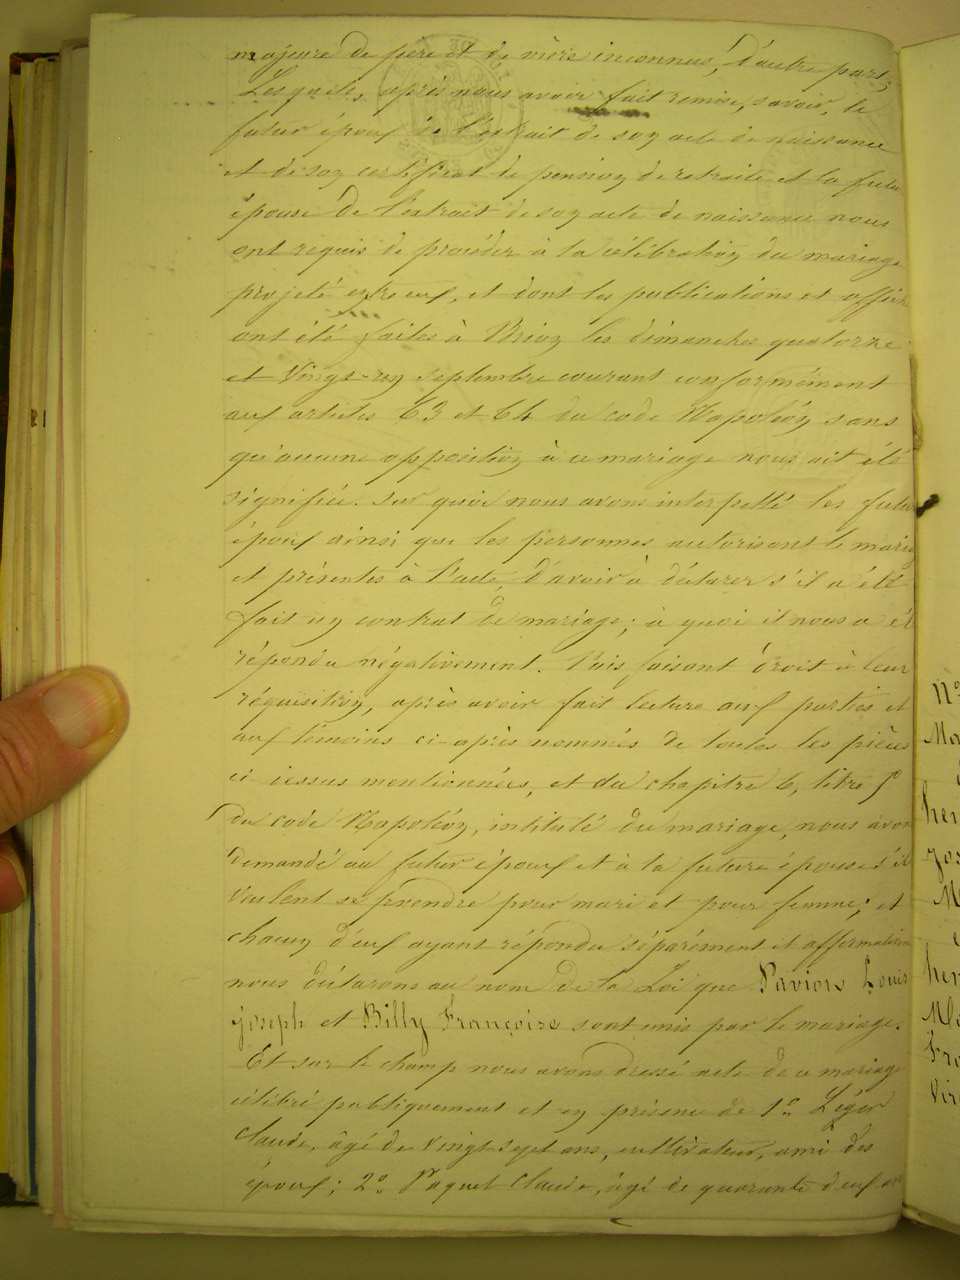 majeure de père et de mère inconnus, d'autre part;
Lesquels, après nous avoir fait remise, savoir, le
futur époux de l'extrait de son acte de naissance
et de son certificat de pension de retraite et la future
épouse de l'extrait de son acte de naissance nous
ont requis de procéder à la célébration du mariage
projeté entre eux, et dont les publications et affiches
ont été faites à les dimanches quatorze
et Vingt-un septembre courant conformément
aux articles 63 et 64 du code Napoléon sans
qu'aucune opposition à ce mariage nous ait été
signifiée. Sur quoi nous avons interpellé les futurs
époux ainsi que les personnes autorisant le mariage
et présentes à l'acte, d'avoir à déclarer s'il a été
fait un contrat de mariage; à quoi il nous a été
répondu négativement. Puis faisant droit à leur
réquisition, après avoir fait lecture aux parties et
aux témoins ci-après nommés de toutes les pièces
ci dessus mentionnées, et du chapitre 6, titre 5
du code Napoléon, intitulé du mariage, nous avons
demandé au futur époux et à la future épouse s'ils
veulent se prendre pour mari et pour femme; et
chacun d'eux ayant répondu séparément et affirmativement
nous déclarons au nom de la Loi que Paviors Louis
Joseph et Billy Françoise sont unis par le mariage.
Et sur le champ nous avons dressé acte de ce mariage
célébré publiquement et en présence de 1° Léger
Claude, âgé de vingt sept ans, cultivateur, ami des
époux; 2° Paquet Claude, âgé de quarante deux ans
N°